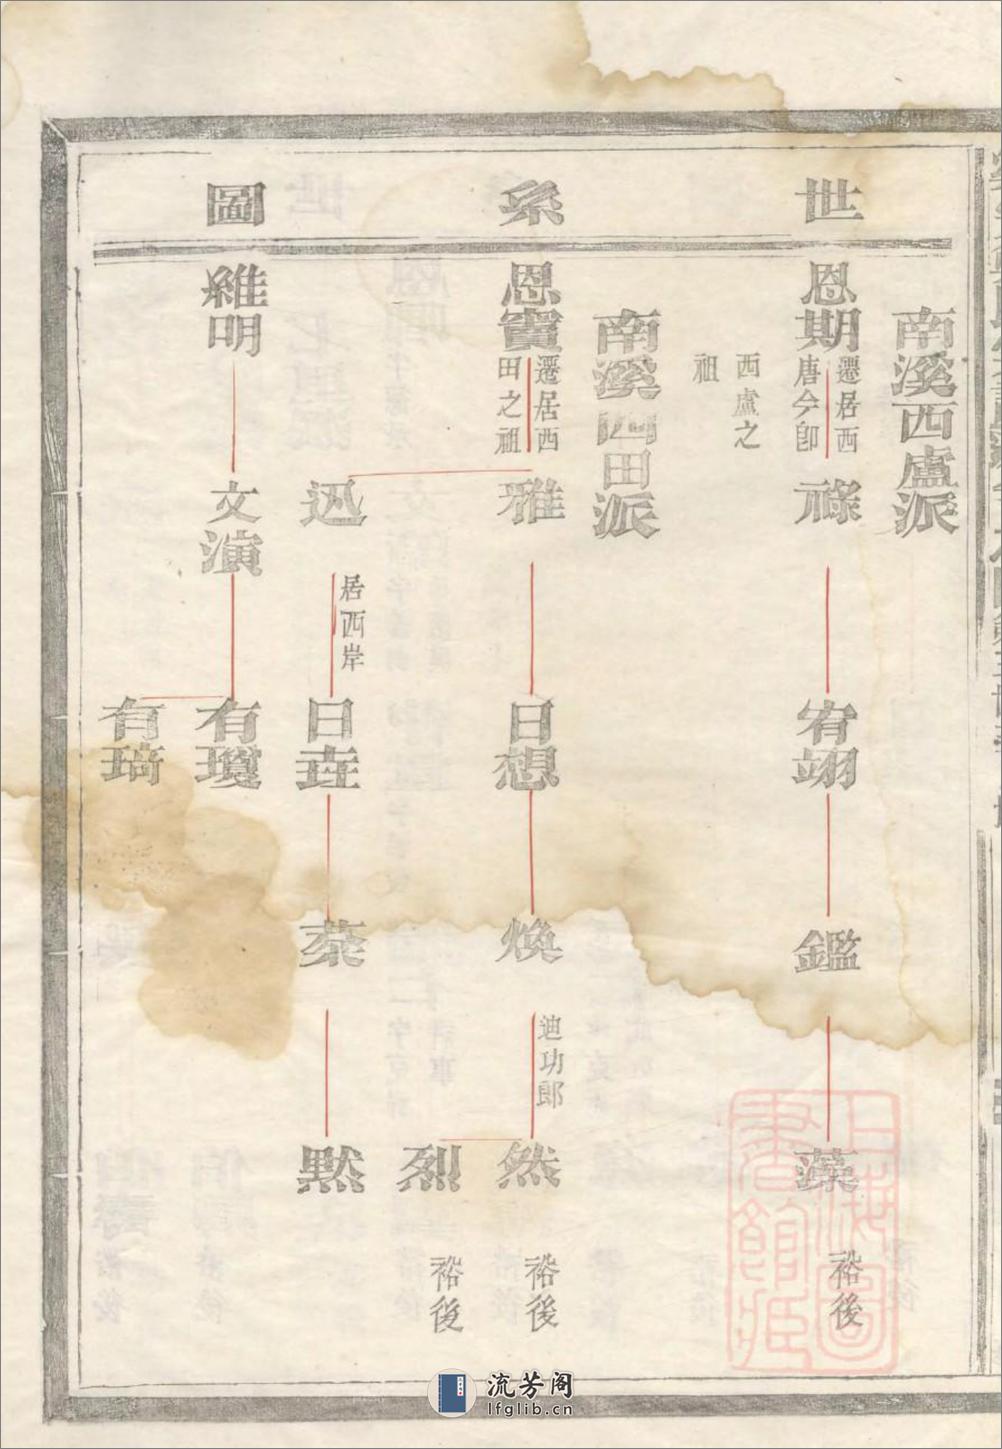 世
系
圖
南溪西盧派
恩期
遷居西
唐今卽
西盧之
祖
祿
宥翊
鑑
藻
裕後
南溪西田派
恩竇
遷居西
田之祖
雅
日想
煥
迪功郎
然
裕後
烈
裕後
迅
居西岸
日荘
蔡
黙
維明
文演
有瓊
有琦
上海圖書館藏
流芳阁
lfglib.cn